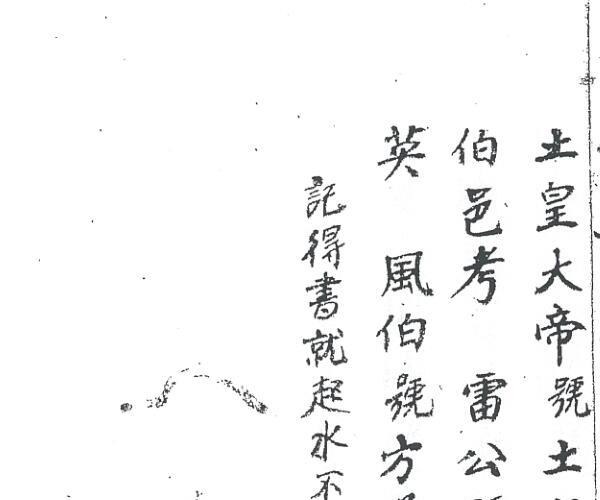 土皇大帝號土
伯邑考 雷公
英 風伯號方
記得書就起水不